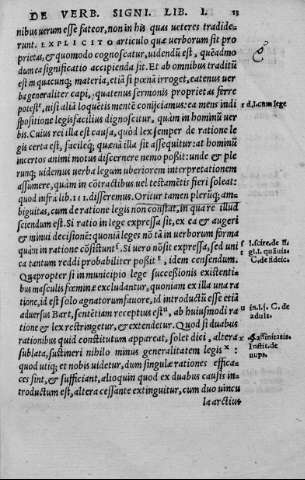 DE VERB. SIGNI. LIB. I. 13
nibus uerum esse fateor, non in his quas ueteres tradide-
runt. EXPLICITO articulo quæ uerborum sit pro
prietas, & quomodo cognoscatur, uidendũ est, quẽadmo
dum ea significatio accipienda sit. Et ab omnibus traditũ
est in quacunq; materia, etiã si pœna irroget, eatenus uer
ba generaliter capi, quatenus sermonis proprietas ferre
potest, nisi aliâ loquẽtis mentẽ conijciamus: ea mens indi
spositione legis facilius dignoscitur, quàm in hominũ uer
bis. Cuius rei illa est causa, quòd lex semper de ratione le
gis certa est, facileq́; quenã illa sit assequitur: at hominũ
incertos animi motus discernere nemo poßit: unde & ple
runq; uidemus uerba legum uberiorem interpretationem
assumere, quàm in cõtractibus uel testamẽtis fieri soleat:
quod infra lib. III. disseremus. Oritur tamen plerũq; am-
biguitas, cum de ratione legis non cõstat, in qua re illud
sciendum est. Si ratio in lege expressa sit, ex ea & augeri
& minui decisionẽ: quoniã leges nõ tã in uerborum forma
quàm in ratione cõsistunt. Si uero nõ sit expressa, sed uni
ca tantum reddi probabiliter poßit, idem censendum.
Quapropter si in municipio lege successionis existenti-
bus masculis fœminæ excludantur, quoniam ex illa una ra
tione, id est solo agnatorum fauore, id introductũ esse etiã
aduersus Bart. sententiam receptus est, ab huiusmodi ra
tione & lex restringetur, & extendetur. Quod si duabus
rationibus quid constitutum appareat, solet dici, altera
sublata, sustineri nihilo minus generalitatem legis:
quod utiq; et nobis uidetur, dum singulæ rationes effica-
ces sint, & sufficiant, alioquin quod ex duabus causis in-
troductum est, altera cessante extinguitur, cum duo uincu
la arctius
C. de iudic.
in. l. C. de
adult.
Instit. de
nup.